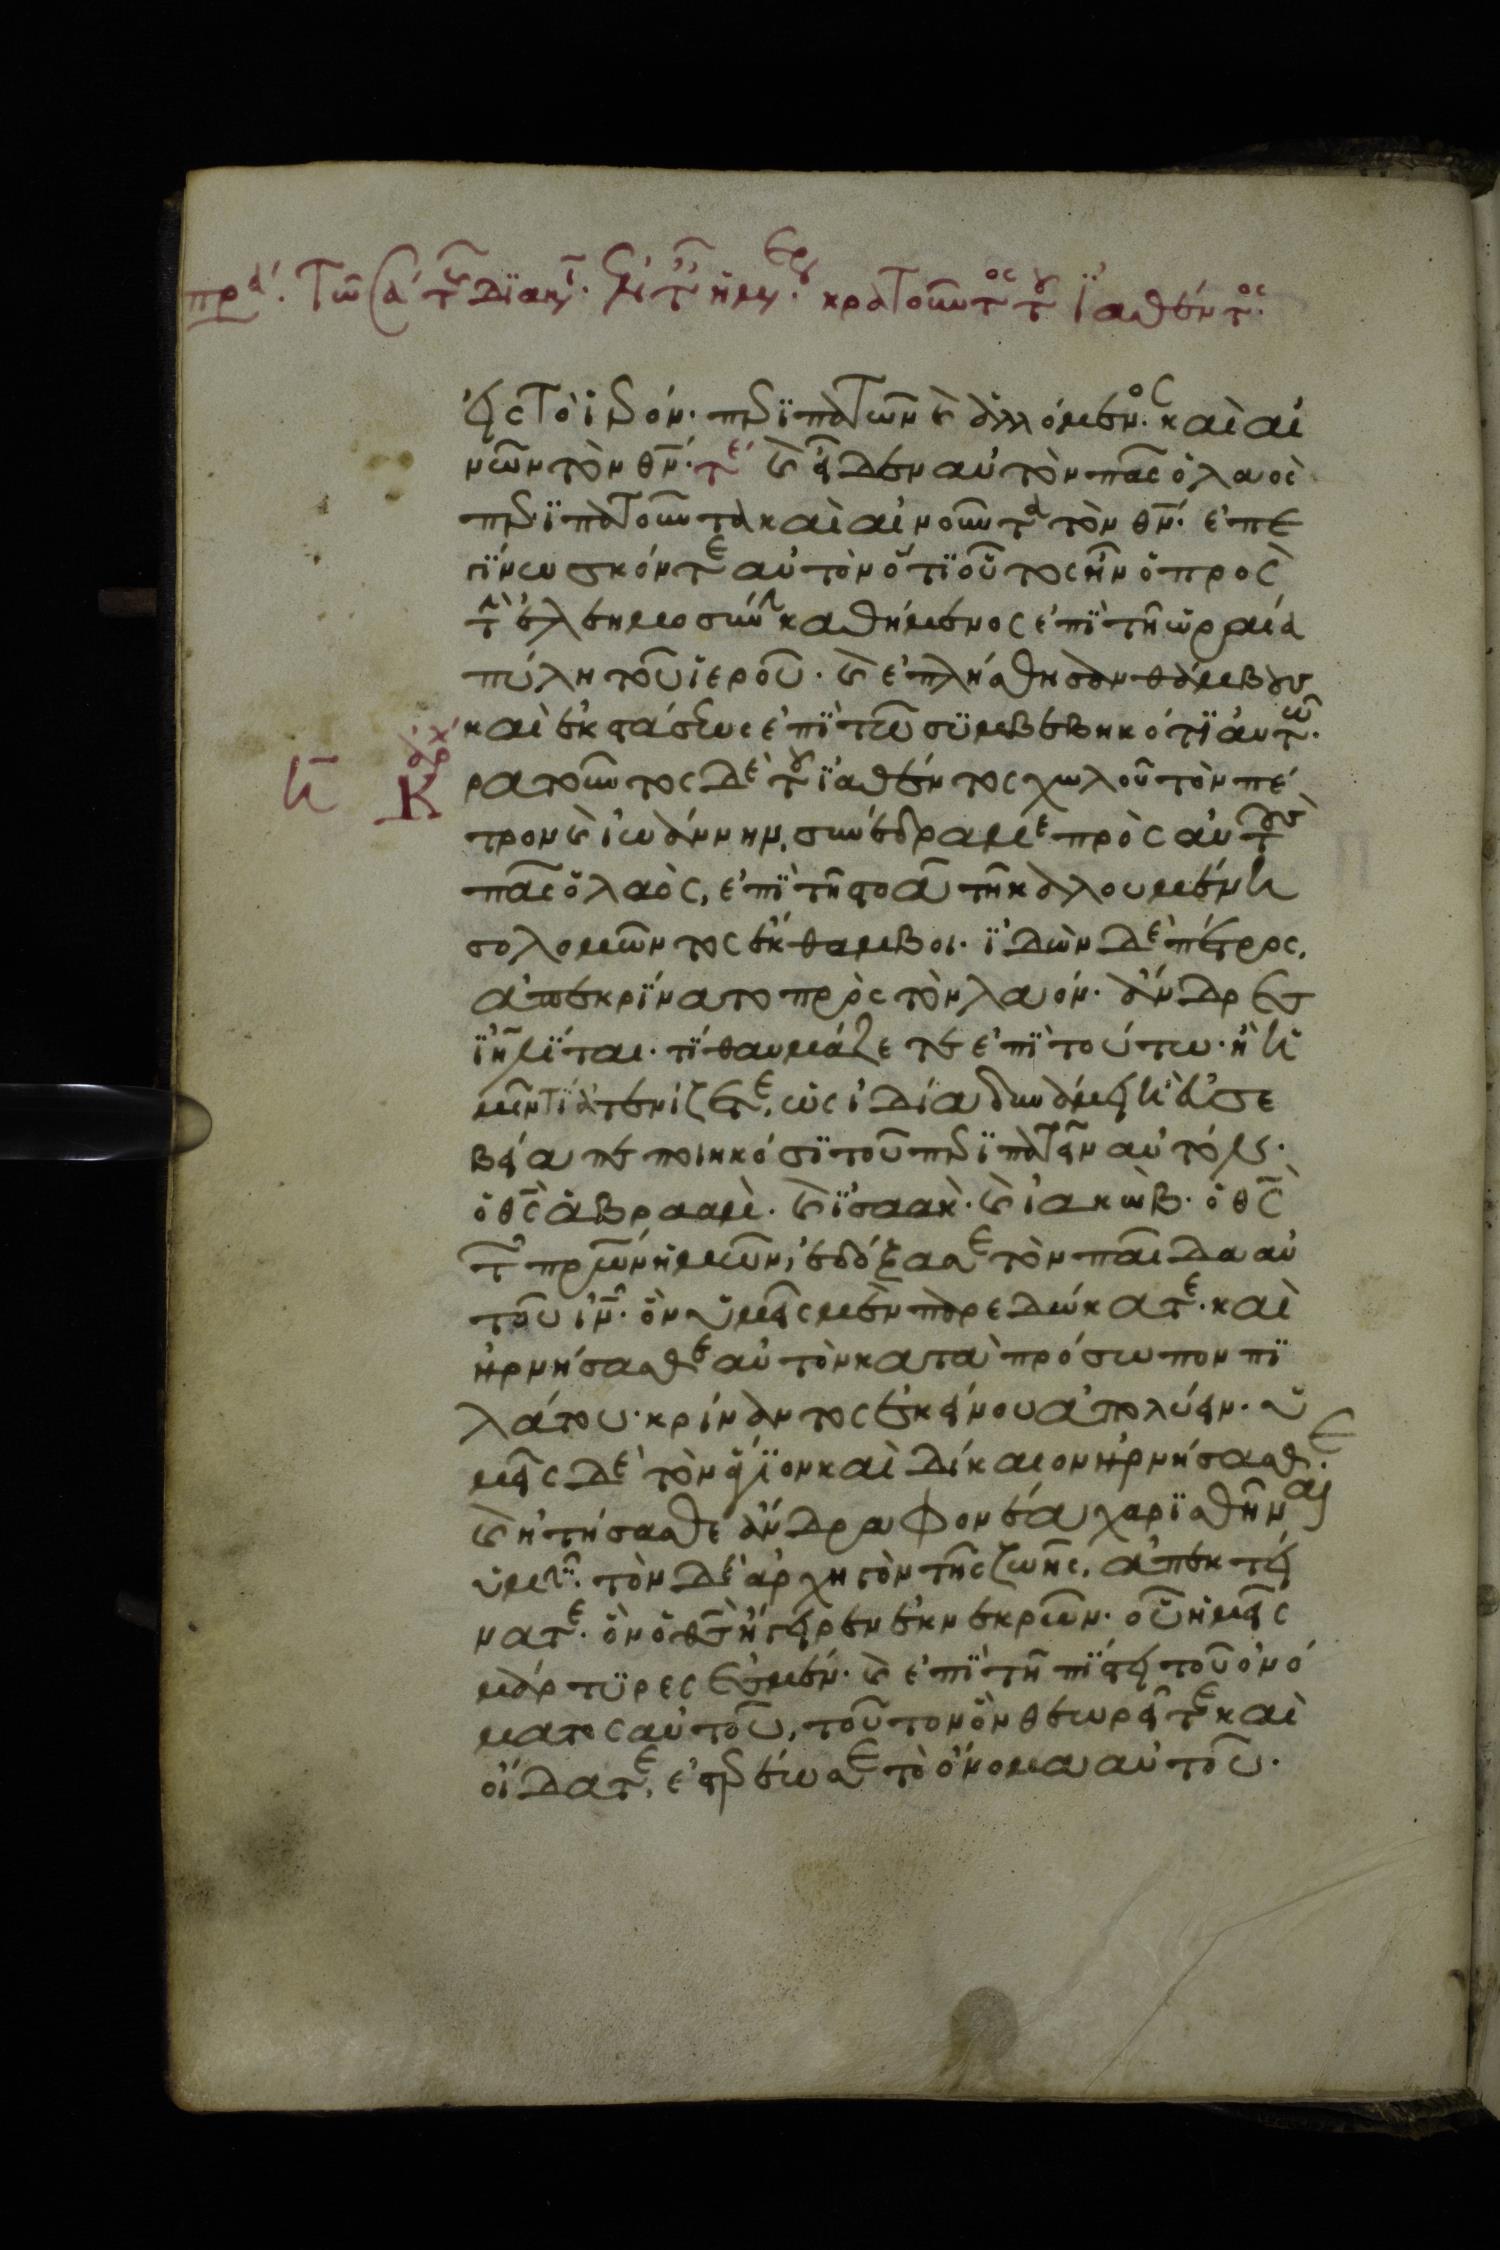 εἰς τὸ ἱερόν· περϊπατῶν καὶ ἁλλόμενος· καὶ αἰ
νῶν τὸν θν· τε καὶ εἶδεν αὐτὸν πᾶς ὁ λαὸς
περϊπατοῦντα καὶ αἰνοῦντα τὸν θν· ἐπε
γΐνωσκόν τε αὐτὸν ὅτϊ οὗτος ἦν ὁ πρὸς
τὴν ἐλεημοσύνην καθήμενος ἐπῒ τῆ ὡραία
πύλη τοῦ ἱεροῦ· καὶ ἐπλήσθησαν θάμβους
καὶ ἐκστάσεως ἐπῒ τῶ συμβεβηκότϊ αὐτῶ·
Κρατοῦντος δὲ τοῦ ϊαθέντος χωλοῦ τὸν πέ
τρον καὶ ἰωάννην, συνέδραμε πρὸς αὐτοὺς
πᾶς ὁ λαὸς, ἐπῒ τῆ στοᾶ τῆ καλουμένη
σολομῶντος ἔκθαμβοι· ϊδὼν δὲ πέτρος,
ἀπεκρΐνατο πρὸς τὸν λαόν· ἄνδρες
ϊηλῖται· τΐ θαυμάζετε ἐπῒ τούτω· ἢ ἡ
μῖν τΐ ἀτενίζετε, ὡς ἰδία δυνάμει ἢ εὐσε
βεία πεποιηκόσϊ τοῦ περϊπατεῖν αὐτόν·
ὁ θς ἀβραὰμ· καὶ ϊσαὰκ· καὶ ἰακὼβ· ὁ θς
τῶν πρων ἡμῶν, ἐδόξασε τὸν παῖδα αὐ
τοῦ ιν· ὃν ὑμεῖς μὲν παρεδώκατε· καὶ
ἠρνήσασθε αὐτὸν κατὰ πρόσωπον πϊ
λάτου· κρίναντος ἐκείνου ἀπολύειν· ὑ
μεῖς δὲ τὸν ἅγϊον καὶ δίκαιον ἠρνήσασθε·
καὶ ἠτήσασθε ἄνδρα φονέα χαρϊσθῆναι
ὑμῖν· τὸν δὲ ἀρχηγὸν τῆς ζωῆς, ἀπεκτεί
νατε· ὃν ὁ θς ἤγειρεν ἐκ νεκρῶν· οὗ ἡμεῖς
μάρτυρές ἐσμεν· καὶ ἐπῒ τῆ πΐστει τοῦ ὀνό
ματος αὐτοῦ, τοῦτον ὃν θεωρεῖτε καὶ
οἴδατε, ἐστερέωσε τὸ ὄνομα αὐτοῦ·